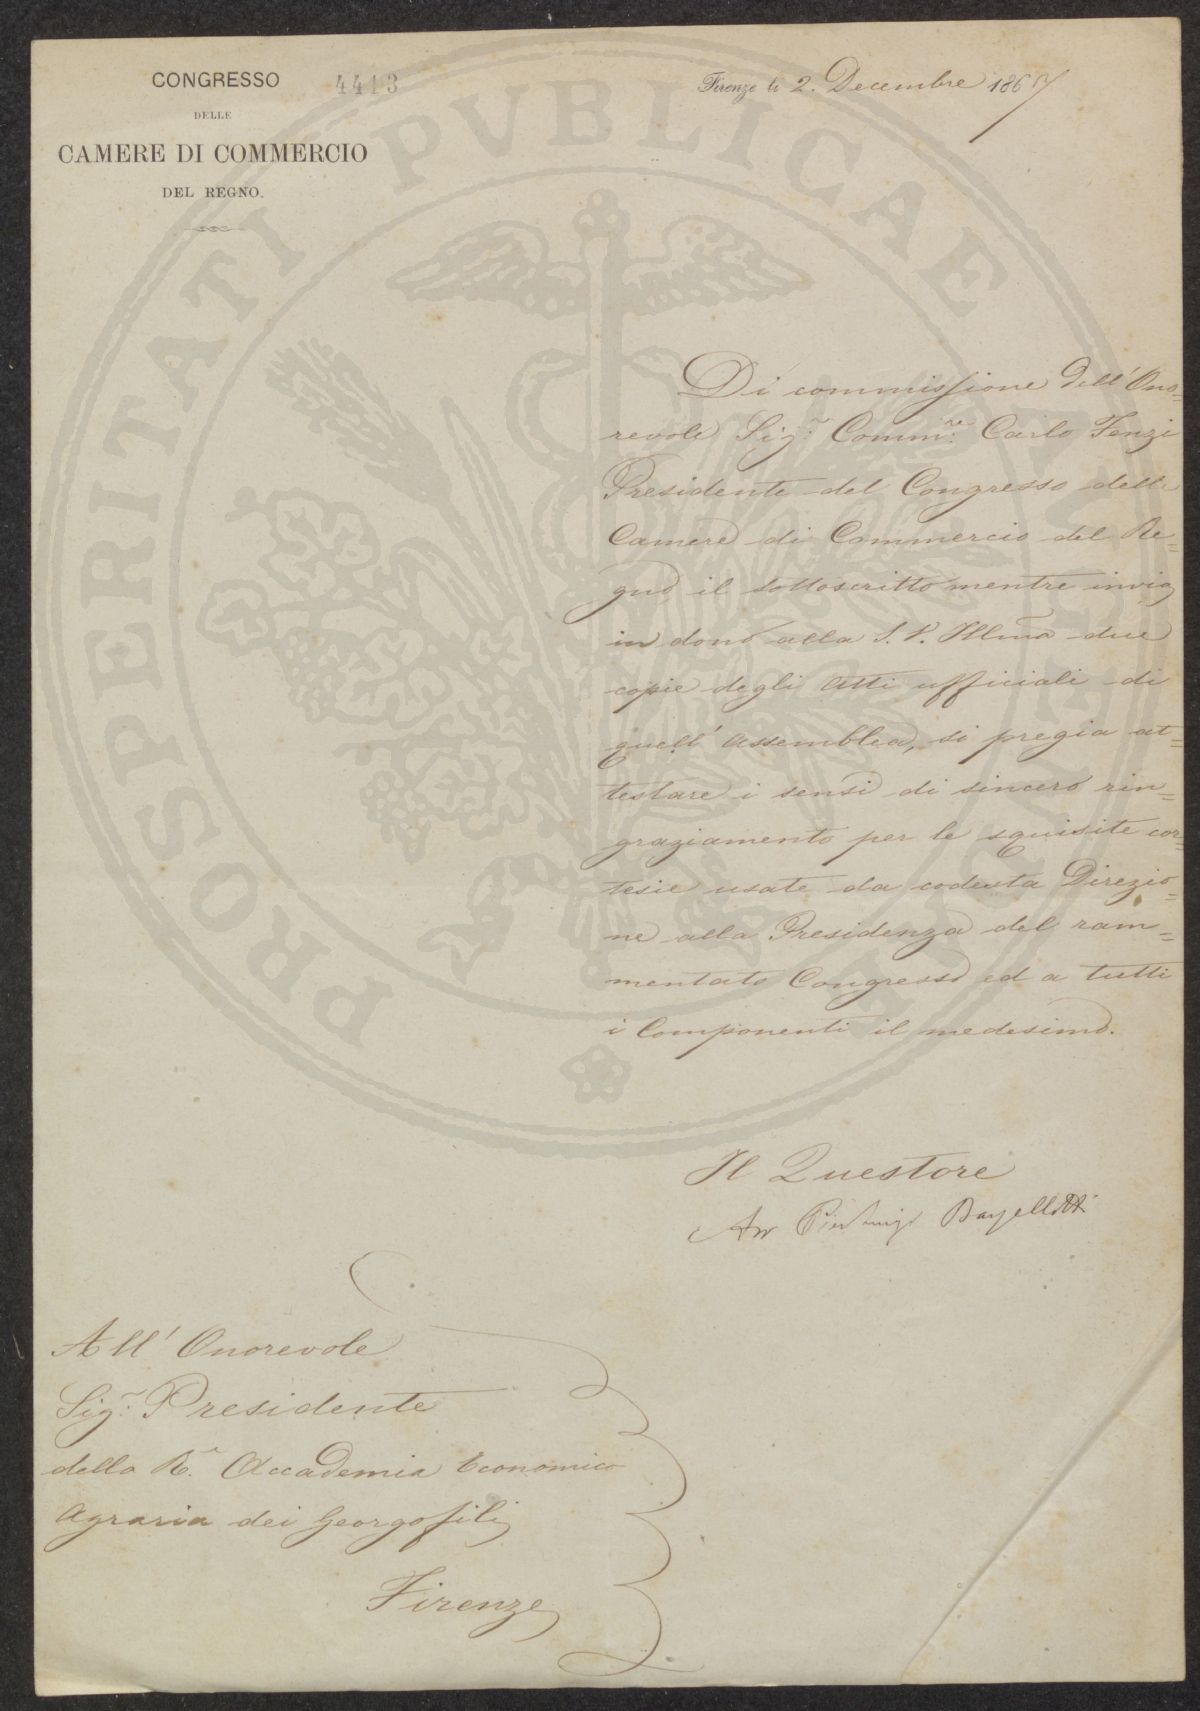 CONGRESSO
DELLE
CAMERE DI COMMERCIO
DEL REGNO.
4413
Firenze li 2. Decembre 1867
PROSPERITATI PVBLICAE AVGENDAE
Di commissione dell'Ono=
revole Sig.r Comm.re Carlo Fenzi
Presidente del Congresso delle
Camere di Commercio del Re=
gno, il sottoscritto mentre invia
in dono alla S. V. Illma due
copie degli Atti ufficiali di
quell'Assemblea, si pregia at=
testare i sensi di sincero rin=
graziamento per le squisite cor=
tesie usate da codesta Direzio=
ne alla Presidenza del ram=
mentato Congresso ed a tutti
i Componenti il medesimo.
Il Questore
Avv Pierluigi
All'Onorevole
Sig.r Presidente
della R.e Accademia Economico
Agraria dei Georgofili
Firenze